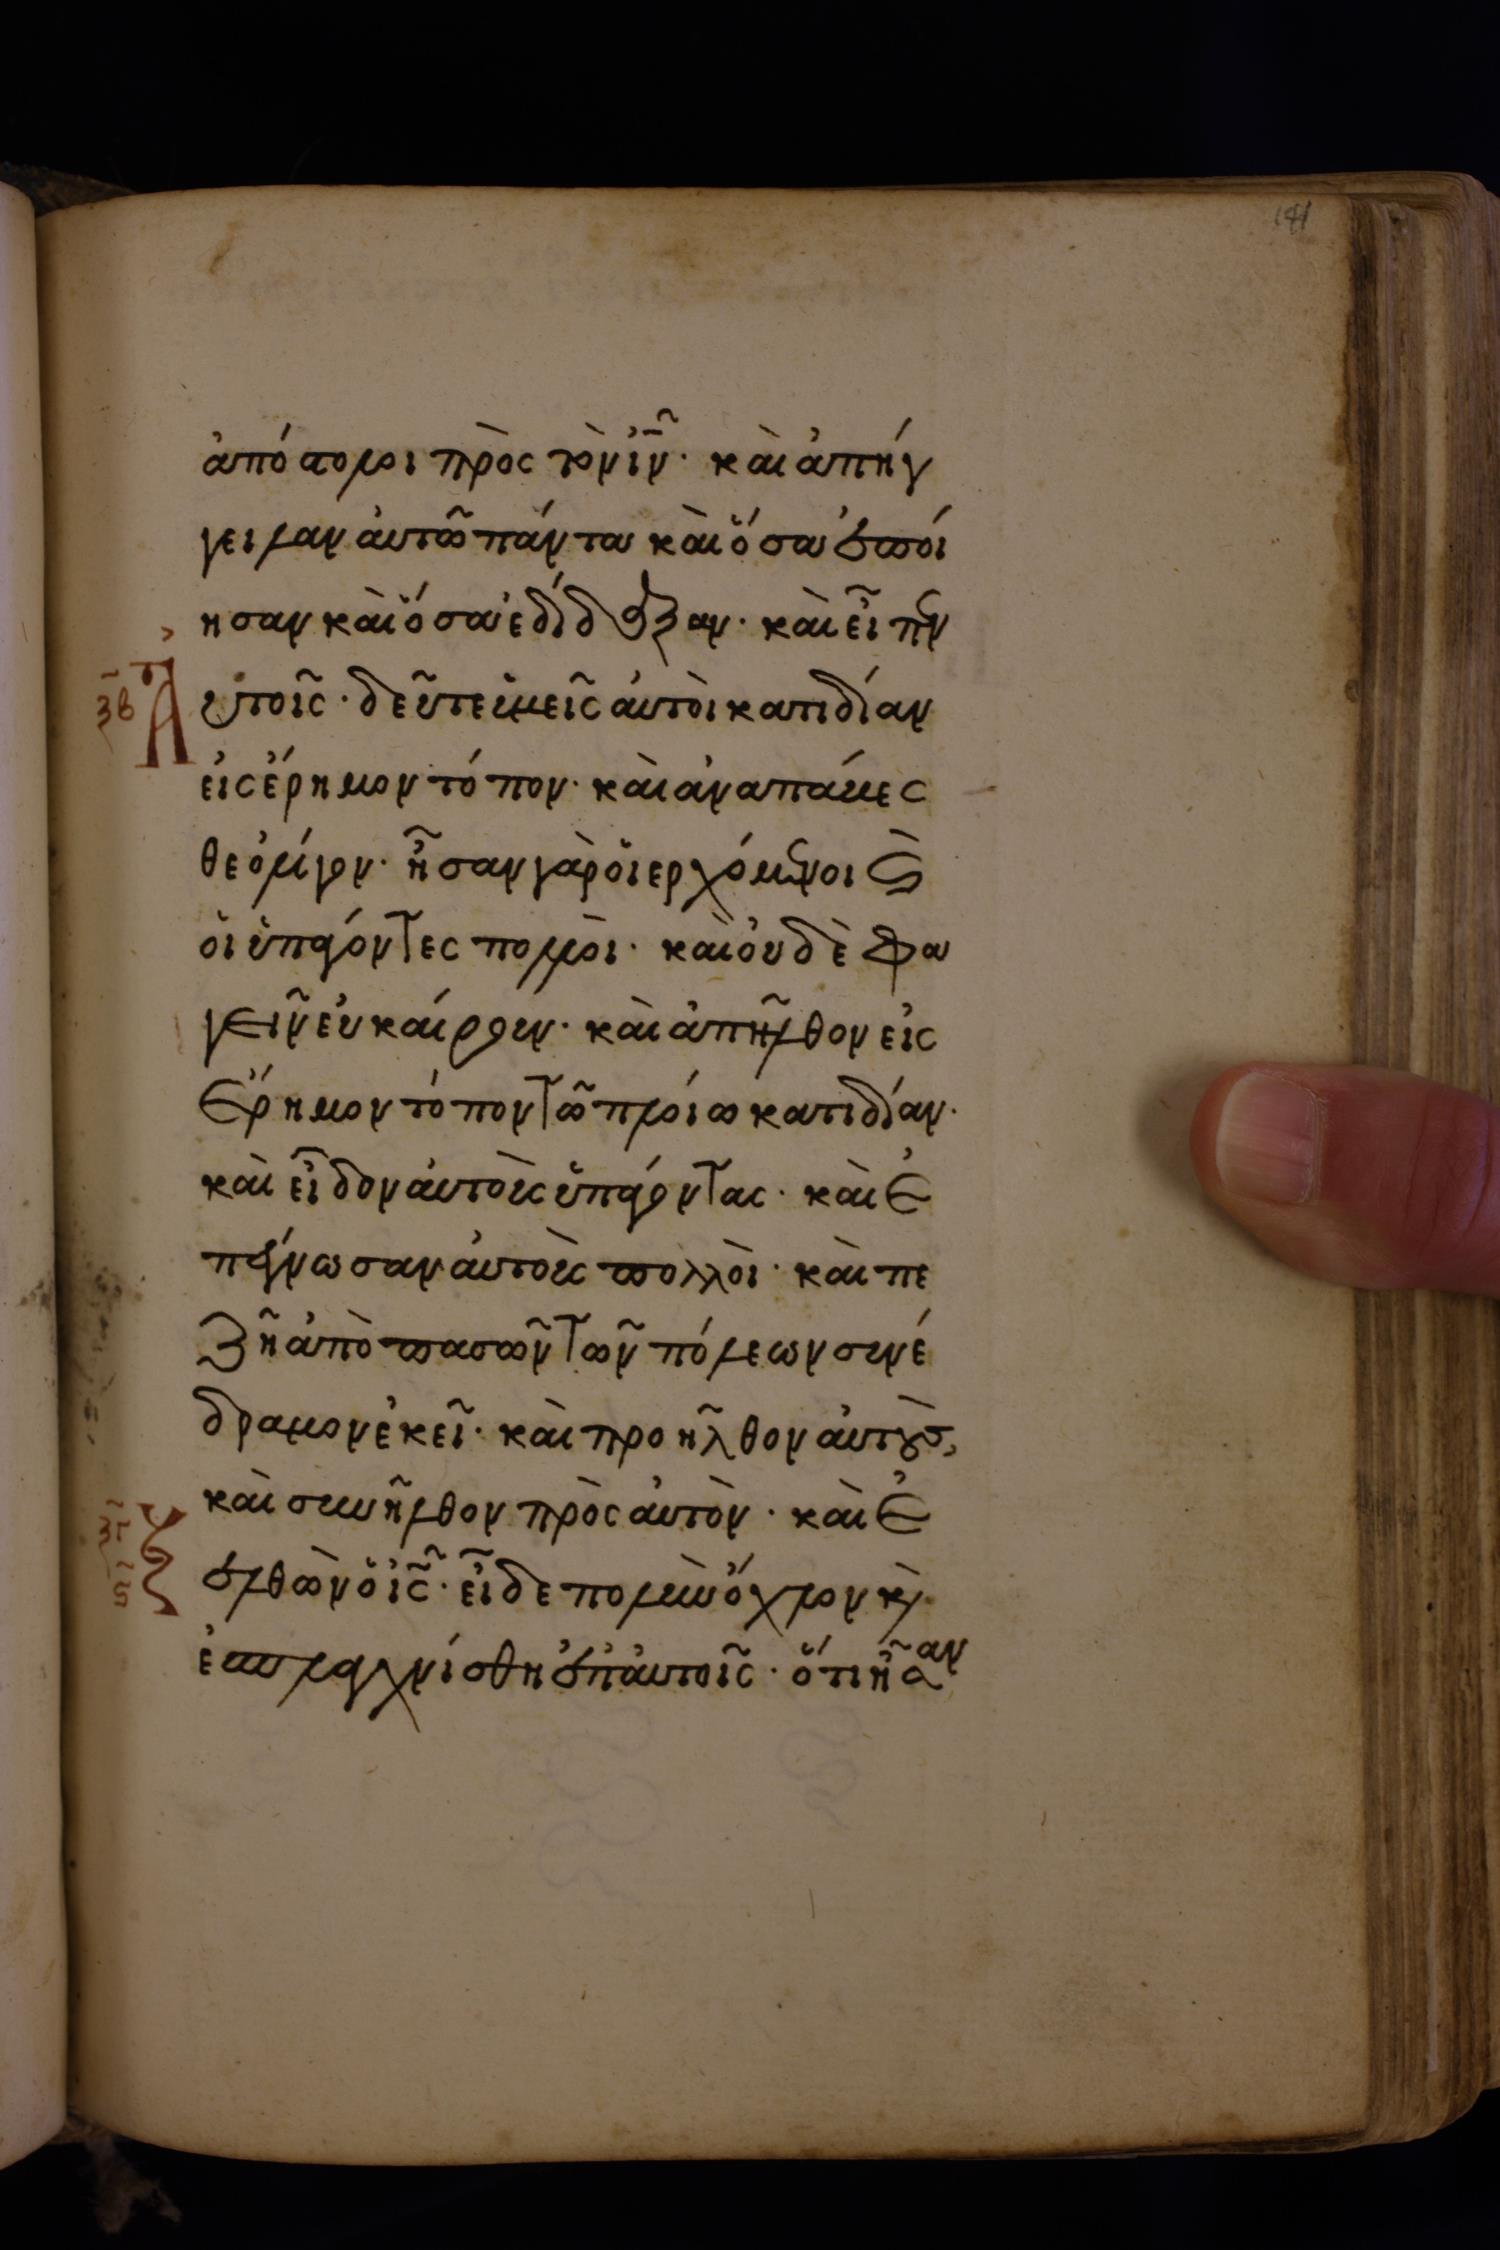 141
ἀπόστολοι πρὸς τὸν ἰν̅· καὶ ἀπήγ
γειλαν ἀυτῶ πάντα καὶ ὅσα ἐποί
ησαν καὶ ὅσα ἐδίδαξαν· καὶ εἶπεν
ξβ Ἀυτοῖς· δεῦτε ὑμεῖς ἀυτὸι κατιδίαν
εἰς ἔρημον τόπον· καὶ ἀναπάυες
θε ὀλίγον· ἦσαν γὰρ ὅι ερχόμενοι ϗ
ὅι ὑπάγοντες πολλὸι· καὶ ὀυδὲ φα
γεῖν ἐυκαίρουν· καὶ ἀπῆλθον εἰς
ἔρημον τόπον τῶ πλόιω κατιδίαν·
καὶ εἶδον ἀυτοὺς ὑπάγοντας· καὶ ἐ
πέγνωσαν ἀυτοὺς πολλὸι· καὶ πε
ζῆ ἀπὸ πασῶν τῶν πόλεων συνέ
δραμον ἐκεῖ· καὶ προῆλθον ἀυτοὺς,
καὶ συνῆλθον πρὸς ἀυτὸν· καὶ ἐ
ξγ
ς ξελθὼν ὁ ις̅· εἶδε πολὺν ὄχλον ϗ
ἐσπλαχνίσθη ἐπ ἀυτοῖς· ὅτι ἦσαν